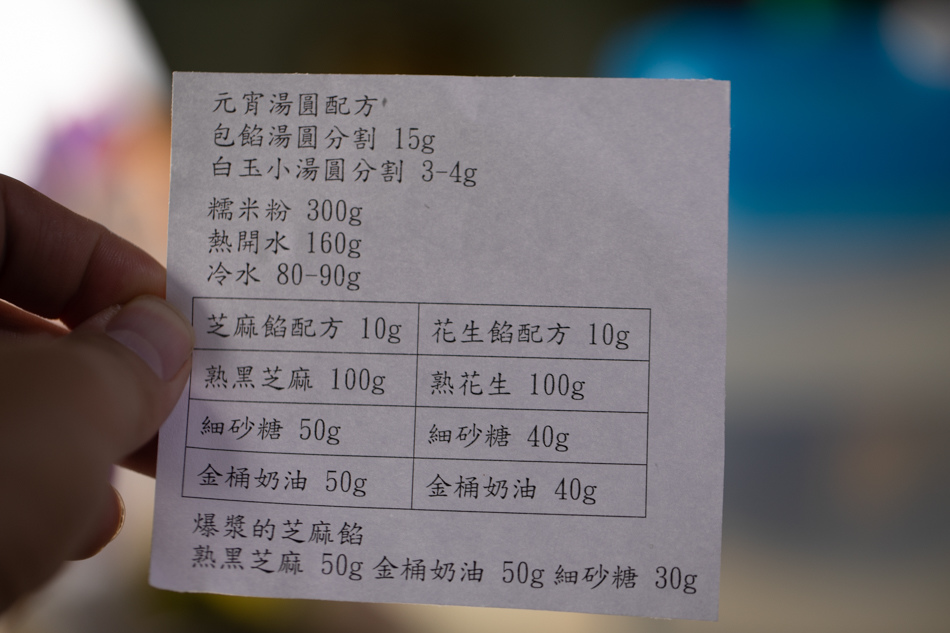 元宵湯圓配方
包餡湯圓分割 15g
白玉小湯圓分割 3-4g
糯米粉 300g
熱開水 160g
冷水 80-90g
芝麻餡配方 10g 花生餡配方 10g
熟黑芝麻 100g 熟花生 100g
細砂糖 50g 細砂糖 40g
金桶奶油 50g 金桶奶油 40g
爆漿的芝麻餡
熟黑芝麻 50g 金桶奶油 50g 細砂糖 30g